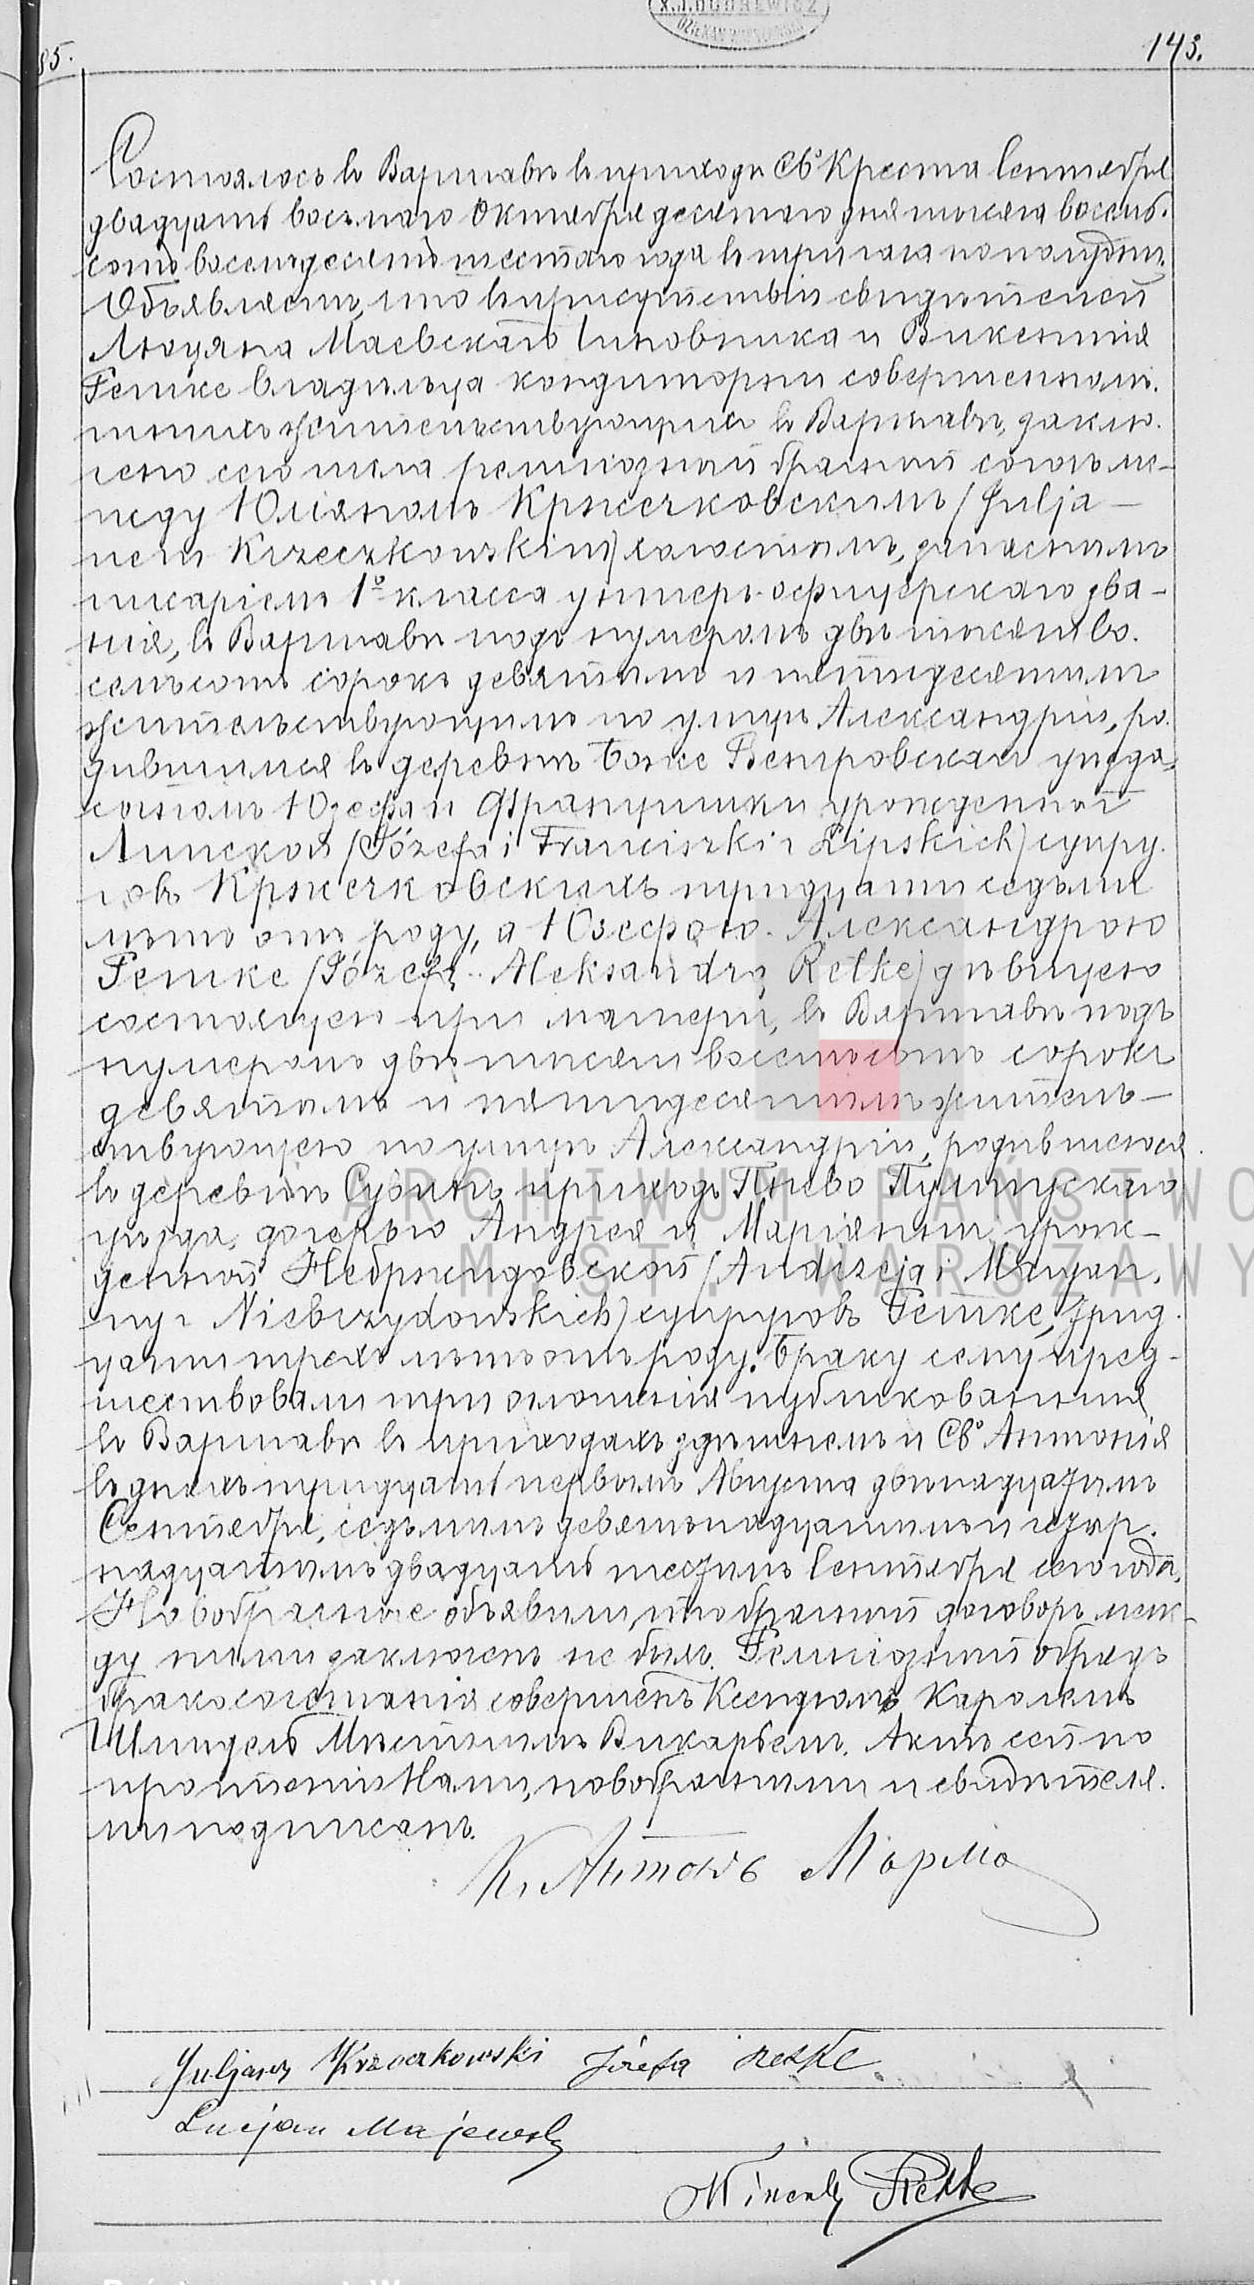 X.J.DUDREWICZ
85.
143.
Состоялось въ Варшавѣ въ приходѣ Св. Креста Сентября
двадцать восьмаго Октября десятаго дня тысяча восемь-
сотъ восемьдесятъ шестаго года въ три часа по полудни.
Объявляемъ, что въ присутствіи свидѣтелей
Люціана Маевскаго Чиновника и Викентія
Ретке владѣльца кондиторни совершеннолѣ-
тнихъ жительствующихъ въ Варшавѣ, заклю-
чено сего числа религіозный брачный союзъ ме-
жду Юліаномъ Кржечковскимъ (Julja-
nem Krzeczkowskim) холостымъ, запаснымъ
писаремъ 1º класса унтеръ-офицерскаго зва-
нія, въ Варшавѣ подъ нумеромъ двѣ тысячи во-
семьсотъ сорокъ девятымъ и пятидесятымъ
жительствующимъ по улицѣ Александріи, ро-
дившимся въ деревнѣ уѣзда,
сыномъ Юзефа и Францишки урожденной
Липской (Józefa i Franciszki z Lipskich) супру-
говъ Кржечковскихъ тридцати седьми
лѣтъ отъ роду, а Юзефою-Александрою
Ретке (Józefą-Aleksandrą Retke) дѣвицею
состоящей при матери, въ Варшавѣ подъ
нумеромъ двѣ тысячи восемьсотъ сорокъ
девятымъ и пятидесятымъ жительс-
твующею по улицѣ Александріи, родившеюся
въ деревнѣ приходъ Пнево Пултускаго
уѣзда, дочерью Андрея и Маріанны урож-
денной Небржидовской (Andrzeja i Maryan-
ny z Niebrzydowskich) супруговъ Ретке, трид-
цати трехъ лѣтъ отъ роду. Браку сему пред-
шествовали три оглашенія публикованныя
въ Варшавѣ въ приходахъ здѣшнемъ и Св. Антонія
въ дняхъ тридцать первомъ Августа двѣнадцатымъ
Сентября, седьмымъ девятнадцатымъ и четыр-
надцатымъ двадцать шестымъ Сентября сего года.
Новобрачные объявили, что брачный договоръ меж-
ду ними заключенъ не былъ. Религіозный обрядъ
бракосочетанія совершенъ Ксендзомъ Каролемъ
Шмидель Мѣстнымъ Викаріемъ. Актъ сей по
прочтеніи Нами, новобрачными и свидѣтеля-
ми подписанъ.
К. Антонъ
Juljan Krzeczkowski Józefa Retke
Lucjan Majewski
Wincenty Retke
ARCHIWUM PAŃSTWO
M.ST. WARSZAWY